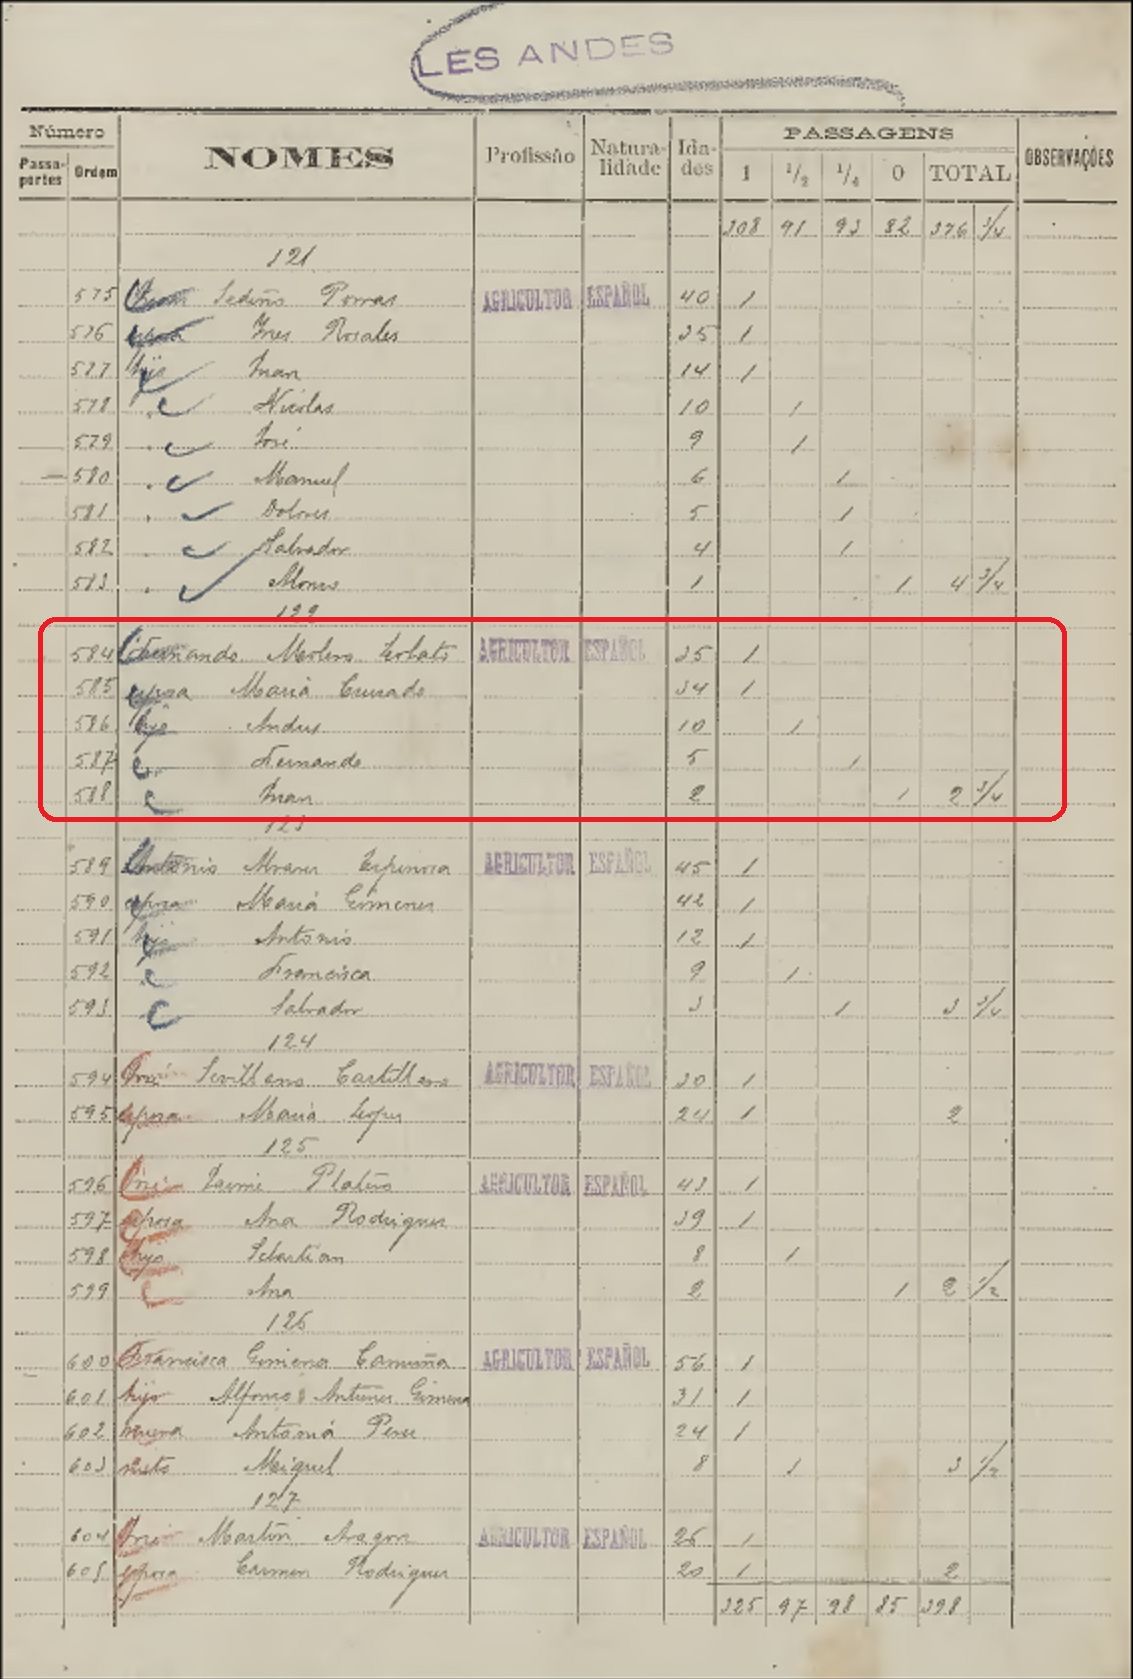 LES ANDES
Número NOMES Profissão Natura-lidade Ida-des PASSAGENS OBSERVAÇÕES
Passa-portes Ordem 1 1/2 1/4 0 TOTAL
308 91 93 82 376 3/4
121
575 Sedeño Porras AGRICULTOR ESPAÑOL 40 1
576 esposa Ines Rosales 35 1
577 hijo Juan 14 1
578 Nicolas 10 1
579 José 9 1
580 Manuel 6 1
581 Dolores 5 1
582 Salvador 4 1
583 Alonso 1 1 4 3/4
122
584 Fernando Molero AGRICULTOR ESPAÑOL 35 1
585 esposa Maria 34 1
586 hijo Andres 10 1
587 Fernando 5 1
588 Juan 2 1 2 3/4
123
589 Antonio Alvarez Espinosa AGRICULTOR ESPAÑOL 45 1
590 esposa Maria Gimenez 42 1
591 hijo Antonio 12 1
592 Francisca 9 1
593 Salvador 3 1 3 3/4
124
594 José Sevillano Castillero AGRICULTOR ESPAÑOL 30 1
595 esposa Maria Lopez 24 1 2
125
596 José Jaime Platero AGRICULTOR ESPAÑOL 43 1
597 esposa Ana Rodriguez 39 1
598 hijo Sebastian 8 1
599 Ana 2 1 2 1/2
126
600 Francisca Gimena Camuña AGRICULTOR ESPAÑOL 56 1
601 hijo Alfonso Antunez Gimena 31 1
602 nuera Antonia Perez 24 1
603 nieto Miguel 8 1 3 1/2
127
604 José Martin Aragon AGRICULTOR ESPAÑOL 26 1
605 esposa Carmen Rodriguez 20 1 2
325 97 98 85 398